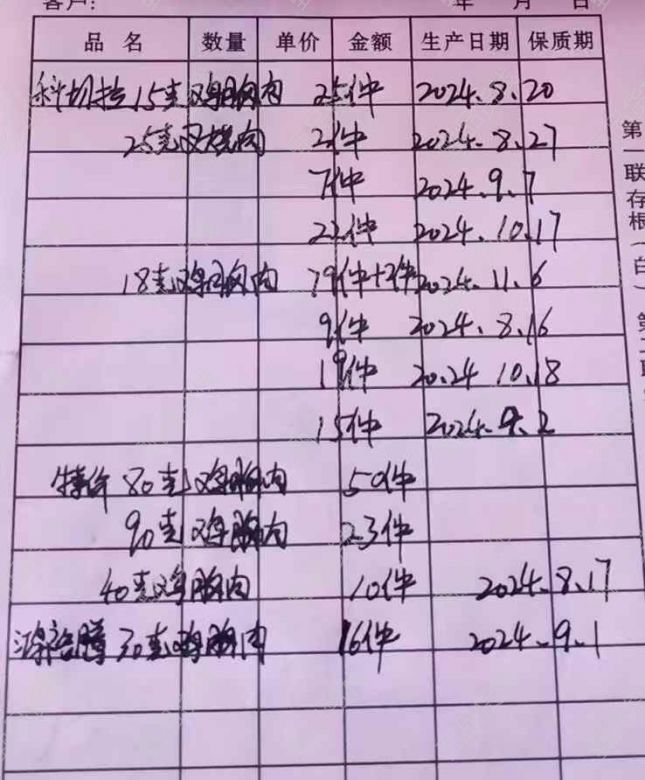 客户: 年 月 日
品名 数量 单价 金额 生产日期 保质期
科切拉15克鸡胸肉 25件 2024.8.20
25克叉烧肉 2件 2024.8.27
7件 2024.9.7
22件 2024.10.17
18克鸡胸肉 79件+2件 2024.11.6
9件 2024.8.16
19件 2024 10.18
15件 2024.9.2
80克鸡胸肉 50件
90克鸡胸肉 23件
40克鸡胸肉 10件 2024.8.17
30克鸡胸肉 16件 2024.9.1
第一联存根(白) 第二联